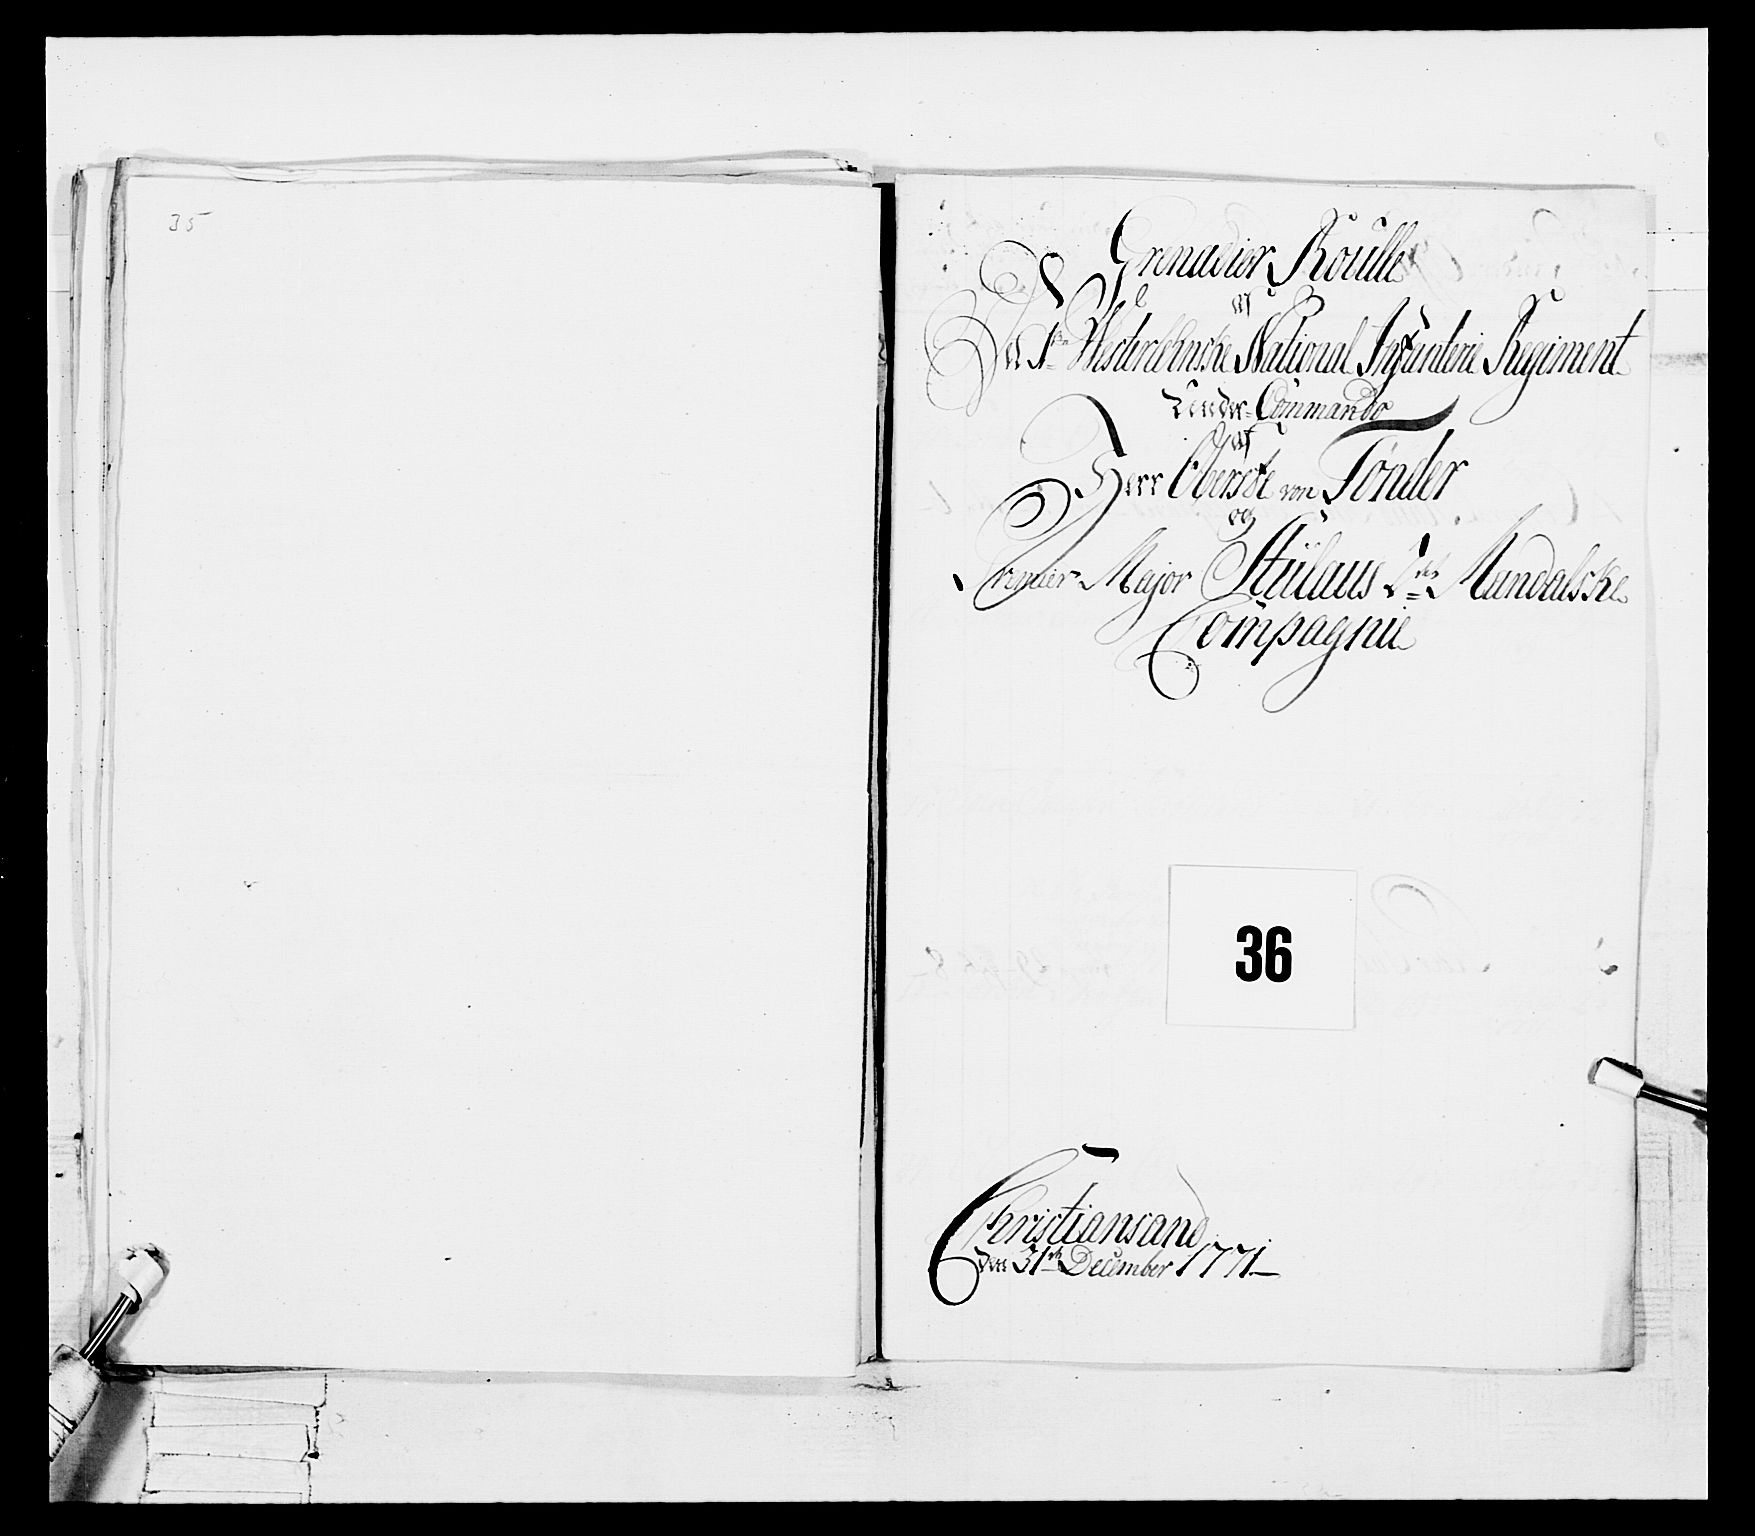 35
Grenadier Roulle
af
Det 1ste Westerlehnske National Infanterie Regiment
Under Commando
af
Herr Oberste von Tönder
og
Premier Major Stülaus 2des Mandalske
Compagnie
36
Christiansand
den 31te December 1771